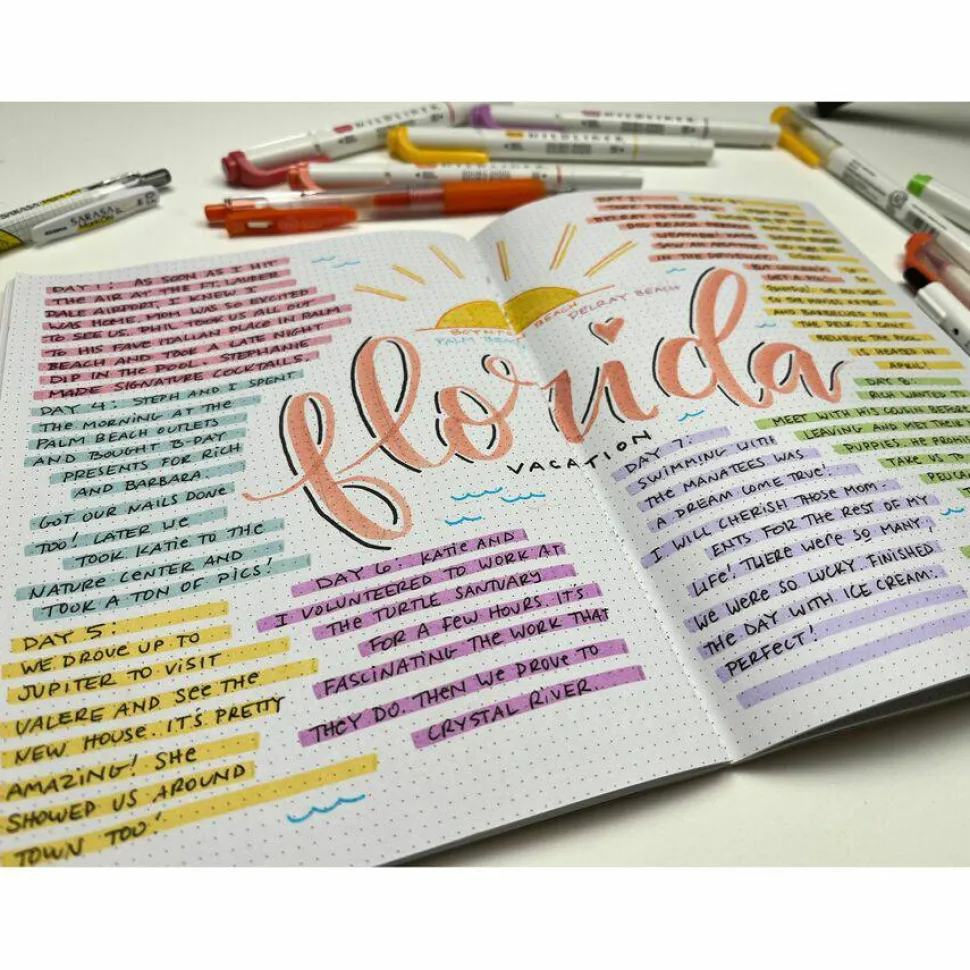 MILDLINER
MILDLINER
MILDLINER
SARASA
DAY 1: AS SOON AS I HIT
THE AIR AT THE FT. LAUDER
DALE AIRPORT, I KNEW I
WAS HOME. MOM WAS SO EXCITED
TO SEE US. PHIL TOOK US ALL OUT
TO HIS FAVE ITALIAN PLACE IN PALM
BEACH AND TOOK A LATE NIGHT
DIP IN THE POOL. STEPHANIE
MADE SIGNATURE COCKTAILS.
DAY 4: STEPH AND I SPENT
THE MORNING AT THE
PALM BEACH OUTLETS
AND BOUGHT B-DAY
PRESENTS FOR RICH
AND BARBARA.
GOT OUR NAILS DONE
TOO! LATER WE
TOOK KATIE TO THE
NATURE CENTER AND
TOOK A TON OF PICS!
DAY 5:
WE DROVE UP TO
JUPITER TO VISIT
VALERE AND SEE THE
NEW HOUSE. IT'S PRETTY
AMAZING! SHE
SHOWED US AROUND
TOWN TOO!
BEACH
DELRAY BEACH
PALM BEACH
florida
VACATION
DAY 6: KATIE AND
I VOLUNTEERED TO WORK AT
THE TURTLE SANTUARY
FOR A FEW HOURS. IT'S
FASCINATING THE WORK THAT
THEY DO. THEN WE DROVE TO
CRYSTAL RIVER.
IN THE
TO THE HOUSE
AND BARBECUED ON
THE DECK. I CAN'T
BELIEVE THE POOL
IS HEATED IN
APRIL!
DAY 7:
SWIMMING WITH
THE MANATEES WAS
A DREAM COME TRUE!
I WILL CHERISH THOSE MOM-
ENTS FOR THE REST OF MY
LIFE! THERE WERE SO MANY.
WE WERE SO LUCKY. FINISHED
THE DAY WITH ICE CREAM.
PERFECT!
DAY 8:
RICH WANTED TO
MEET WITH HIS COUSIN BEFORE
LEAVING AND MET THEIR
PUPPIES. HE PROMISED
TAKE US TO